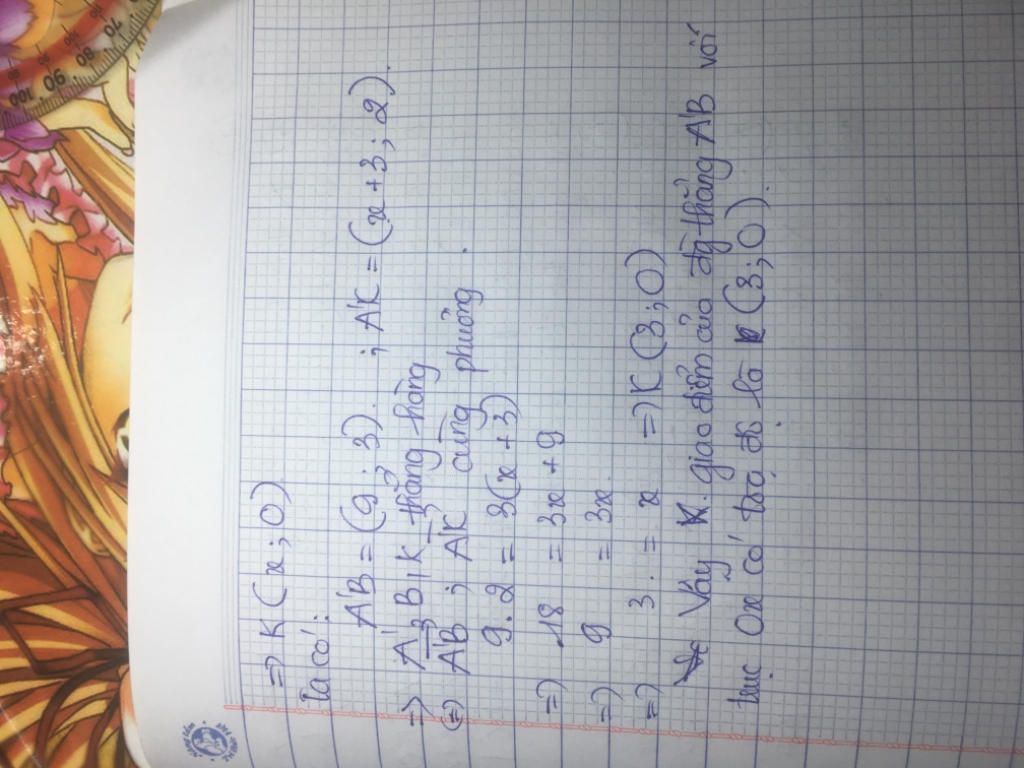 => K (x ; 0)
Ta có :
A'B = (9 ; 3) . ; A'K = (x + 3 ; 2).
=> A' , B , K thẳng hàng
(=) A'B ; A'K cùng phương .
9 . 2 = 3(x + 3)
=) 18 = 3x + 9
=) 9 = 3x .
=) 3 . = x =) K (3 ; 0)
Vậy K . giao điểm của đg thẳng A'B với
trục Ox có toạ độ là K (3 ; 0) .
100 90 80 70